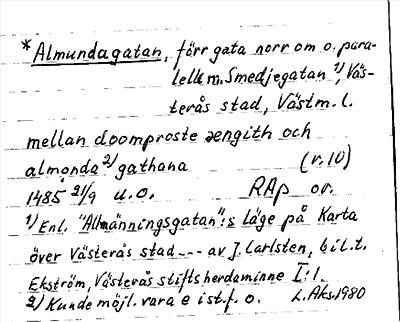 *Almundagatan, förr gata norr om o. para-
lellt m. Smedjegatan 1), Väs-
terås stad, Västm. l.
mellan doomproste ængith och
almonda 2) gathana (v. 10)
1485 21/9 u.o. RAp or.
1) Enl. "Allmänningsgatan":s läge på Karta
över Västerås stad --- av J. Carlsten, bil. t.
Ekström, Västerås stifts herdaminne I:1.
2) Kunde möjl. vara e ist. f. o. L.Aks. 1980